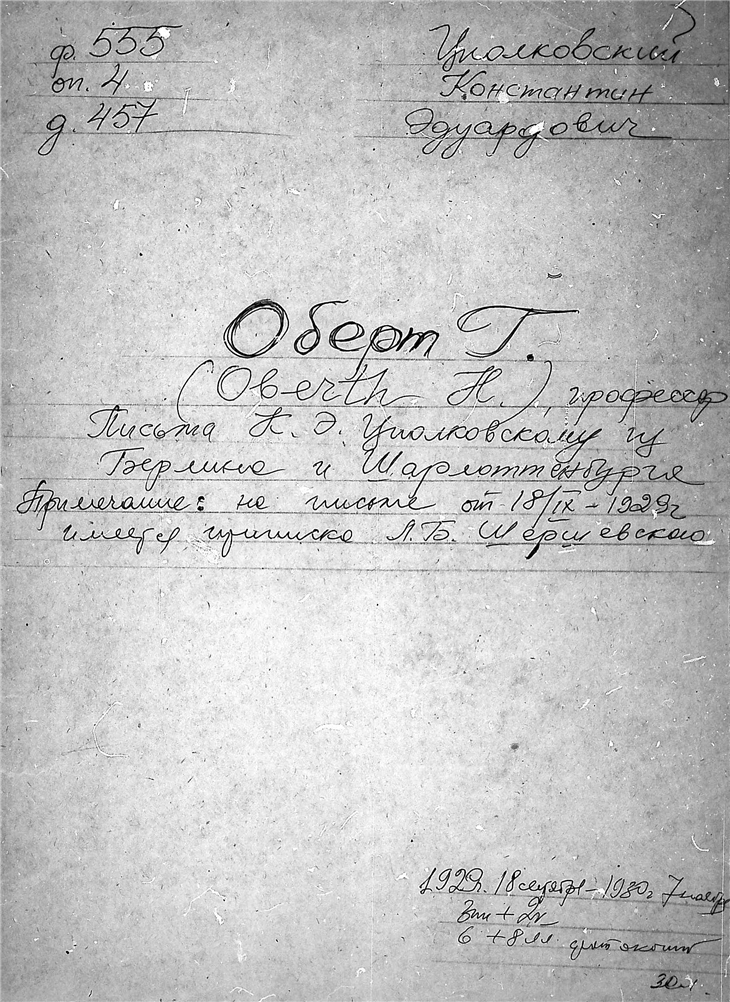 ф. 555
оп. 4
д. 457
Циолковский
Константин
Эдуардович
Оберт Г.
(Oberth H.), профессор
Письма К. Э. Циолковскому из
Берлина и Шарлоттенбурга
Примечание: на письме от 18/IX - 1929г
имеется приписка А.Б. Шершевского
1929г. 18 сентября - 1930г 7 ноября
6 + 8 лл
30л.